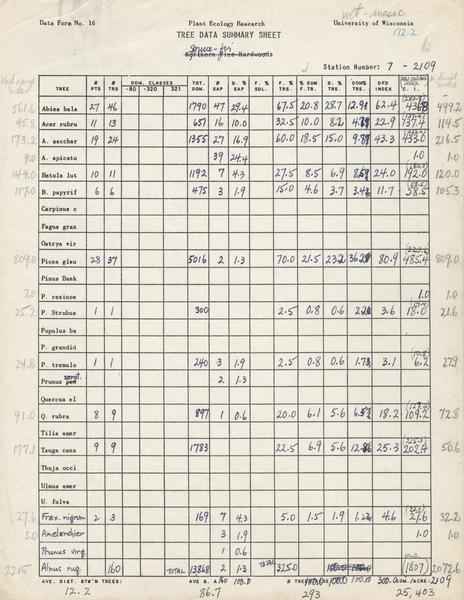 wet-mesic
172.2
Data Form No. 16 Plant Ecology Research University of Wisconsin
TREE DATA SUMMARY SHEET
Spruce-fir
Northern Pine Hardwoods
Station Number: 7 - 2109
TREE # PTS # TRS DOM. CLASSES -80 -320 321 TOT. DOM. # SAP D. % SAP F. % SDL F. % TRS. % SUM F.TR. D. % TRS. DOM% TRS. DFD INDEX C. I.
561.6 Abies bala 27 46 1790 47 29.4 67.5 20.8 28.7 62.4 499.2
45.8 Acer rubru 11 13 657 16 10.0 32.5 10.0 8.2 22.9 437.4 114.5
173.2 A. sacchar 19 24 1355 27 16.9 60.0 18.5 15.0 43.3 433.0 216.5
9.0 A. spicatu 39 24.4 1.0 1.0
144.0 Betula lut 10 11 1192 7 4.3 27.5 8.5 6.9 24.0 192.0 120.0
117.0 B. papyrif 6 6 475 3 1.9 15.0 4.6 3.7 11.7 58.5 105.3
Carpinus c
Fagus gran
Ostrya vir
809.0 Picea glau 28 37 5016 2 1.3 70.0 21.5 23.2 80.9 485.4 809.0
Pinus Bank
7.0 P. resinos 1.0 1.0
25.2 P. Strobus 1 1 300 2.5 0.8 0.6 3.6 18.0 21.6
Populus ba
P. grandid
24.8 P. tremulo 1 1 240 3 1.9 2.5 0.8 0.6 1.73 3.1 6.2 27.9
Prunus serot. 2 1.3
Quercus el
91.0 Q. rubra 8 9 897 1 0.6 20.0 6.1 5.6 18.2 109.2 72.8
Tilia amer
177.1 Tsuga cana 9 9 1783 22.5 6.9 5.6 25.3 202.4 50.6
Thuja occi
Ulmus amer
U. fulva
27.6 Frax. nigrum 2 3 169 7 4.3 5.0 1.5 1.9 4.6 27.6 32.2
3.0 Amelanchier 3 1.9 1.0 1.0
Prunus virg. 1 0.6
2215 Alnus rug. 160 TOTAL 13868 2 1.3 TOTAL 325.0 (1807) 2072.6
AVE. DIST. BTW'N TREES: AVE B. A. 160 100.0 # TREES/ACRE 300.0 DOM./ACRE: 2109
12.2 86.7 293 25,403